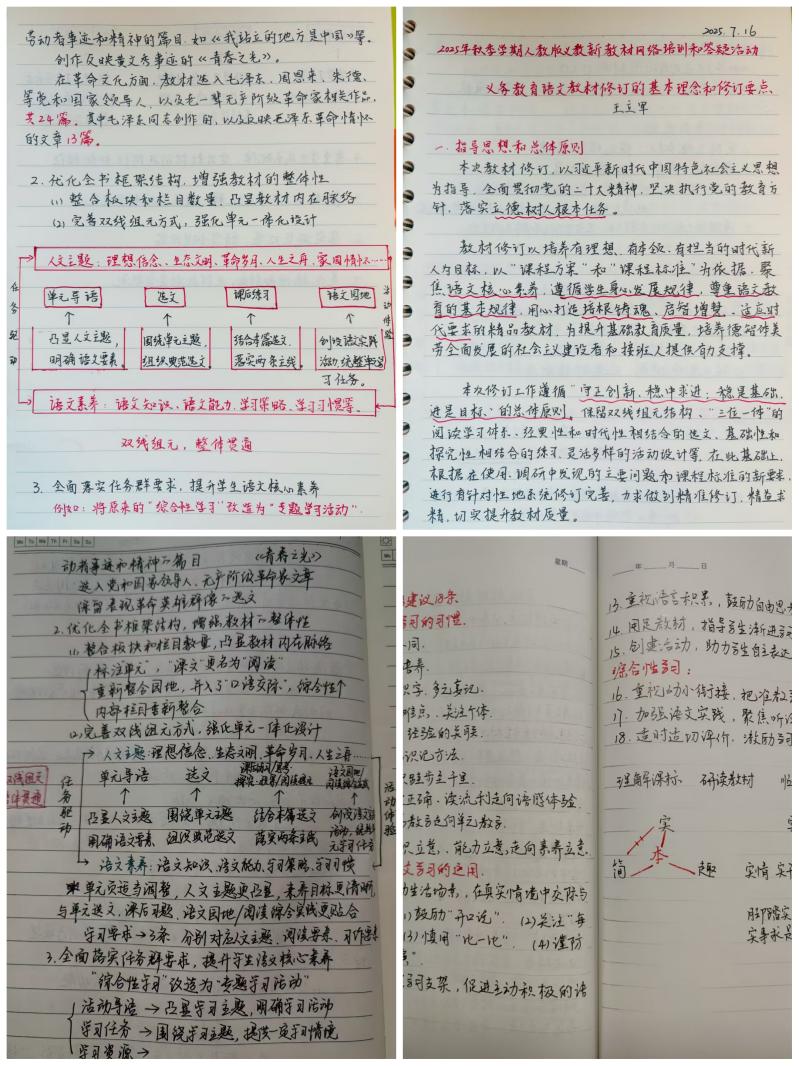 劳动者事迹和精神的篇目,如《我站立的地方是中国》等。
创作反映黄文秀事迹的《青春之光》。
在革命文化方面,教材选入毛泽东、周恩来、朱德,
等党和国家领导人,以及老一辈无产阶级革命家相关作品,
共24篇。其中毛泽东同志创作的,以及反映毛泽东革命情怀
的文章13篇。
2. 优化全书框架结构,增强教材的整体性
(1) 整合板块和栏目数量,凸显教材内在脉络
(2) 完善双线组元方式,强化单元一体化设计
人文主题:理想信念、生态文明、革命岁月、人生之舟、家国情怀……
任务驱动
活动体验
单元导语
选文
课后练习
语文园地
凸显人文主题,
明确语文要素。
围绕单元主题,
组织典范选文。
结合本篇选文,
落实两条主线。
创设语文实践
活动,统整单元学
习任务。
语文素养:语文知识、语文能力、学习策略、学习习惯等。
双线组元,整体贯通
3. 全面落实任务群要求,提升学生语文核心素养
例如:将原来的“综合性学习”改造为“专题学习活动”。
2025.7.16
2025年秋季学期人教版义教新教材网络培训和答疑活动
义务教育语文教材修订的基本理念和修订要点、
王立军
一、指导思想和总体原则
本次教材修订,以习近平新时代中国特色社会主义思想
为指导,全面贯彻党的二十大精神,坚决执行党的教育方
针,落实立德树人根本任务。
教材修订以培养有理想、有本领、有担当的时代新
人为目标,以“课程方案”和“课程标准”为依据,聚
焦语文核心素养,遵循学生身心发展规律,尊重语文教
育的基本规律,用心打造培根铸魂、启智增慧、适应时
代要求的精品教材,为提升基础教育质量,培养德智体美
劳全面发展的社会主义建设者和接班人提供有力支撑。
本次修订工作遵循“守正创新、稳中求进;稳是基础,
进是目标、”的总体原则。保留双线组元结构、“三位一体”的
阅读学习体系、经典性和时代性相结合的选文、基础性和
探究性相结合的练习、灵活多样的活动设计等。在此基础上,
根据在使用、调研中发现的主要问题和课程标准的新要求,
进行有针对性地系统修订完善,力求做到精准修订,精益求
精,切实提升教材质量。
Mo Tu We Th Fr Sa Su
动者事迹和精神的篇目 《青春之光》
选入党和国家领导人、无产阶级革命家文章
保留表现革命英雄群像的选文
2. 优化全书框架结构,增强教材的整体性
(1) 整合板块和栏目数量,凸显教材内在脉络
标注单元”,“课文”更名为“阅读”
重新整合园地,并入了“口语交际”,综合性↑
内部栏目重新整合
(2) 完善双线组元方式,强化单元一体化设计
人文主题:理想信念、生态文明、革命岁月、人生之舟……
双线组元
整体贯通
任务驱动
活动体验
单元导语
选文
语文园地/
阅读综合实践
凸显人文主题
明确语文要素
围绕单元主题
组织典范选文
结合本篇选文
落实两条主线
创设语文实践
活动,统整单
元学习任务
语文素养:语文知识、语文能力、学习策略、学习习惯
单元页适当调整,人文主题更凸显,素养目标更清晰
与单元选文、课后习题、语文园地/阅读综合实践更贴合
学习要求→3条 分别对应人文主题、阅读要素、习作要素
3. 全面落实任务群要求,提升学生语文核心素养
“综合性学习”改造为“专题学习活动”
活动导语→凸显学习主题,明确学习活动
学习任务→围绕学习主题,提供一定学习情境
学习资源→
星期
建议18条
学习的习惯.
培养.
识字,多元喜记.
难点、关注个体.
经验的关联.
识记方法.
正确、读流利走向语感体验.
教走向单元教学.
识立意、能力立意,走向素养立意.
学习的运用.
生活场景,在真实情境中交际与
(1)鼓励“开口说”. (2)关注“每
(3)慎用“比一比”. (4)谨防
学习支架,促进主动积极的语
年 月 日
13. 重视语言积累,鼓励自由思考
14. 用足教材,指导学生渐进学习
15. 创建活动,助力学生自主表达
综合性学习:
16. 重视幼小衔接,把准教
17. 加强语文实践,聚焦听说
18. 适时适切评价,激励学习
理解课标 研读教材
实
本
简
趣
实情
脚踏实
实事求是